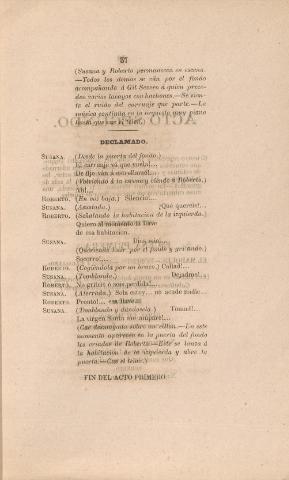 37
(Susana y Roberto permanecen en escena.
—Todos los demas se van por el fondo
acompañando á Gil Seseso á quien prece-
den varios lacayos con hachones.—Se sien-
te el ruido del carruaje que parte.—La
música continúa en la orquesta muy piano
hasta que cae el telon.)
DECLAMADO.
SUSANA. (Desde la puerta del fondo.)
El carruaje va que vuela!...
De fijo ván á estrellarse!...
(Volviendo á la escena y viendo á Roberto.)
Ah!...
ROBERTO. (En voz baja.) Silencio!...
SUSANA. (Asustada.) ¡Qué queréis!..
ROBERTO. (Señalando la habitacion de la izquierda.)
Quiero al momento la llave
de esa habitacion.
SUSANA.
(Queriendo salir por el fondo y gritando.)
Socorro!...
ROBERTO. (Cogiéndola por un brazo.) Callad!...
SUSANA. (Temblando.) Dejadme!
ROBERTO. No griteis ó sois perdida!...
SUSANA. (Aterrada.) Sola estoy... no acude nadie...
ROBERTO. Pronto!... esa llave...
SUSANA. (Temblando y dándosela.) Tomad!...
La virgen Santa me ampare!...
(Cae desmayada sobre un sillon.—En este
momento aparecen en la puerta del fondo
los criados de Roberto.—Este se lanza á
la habitacion de la izquierda y abre la
puerta.—Cae el telon.)
FIN DEL ACTO PRIMERO.